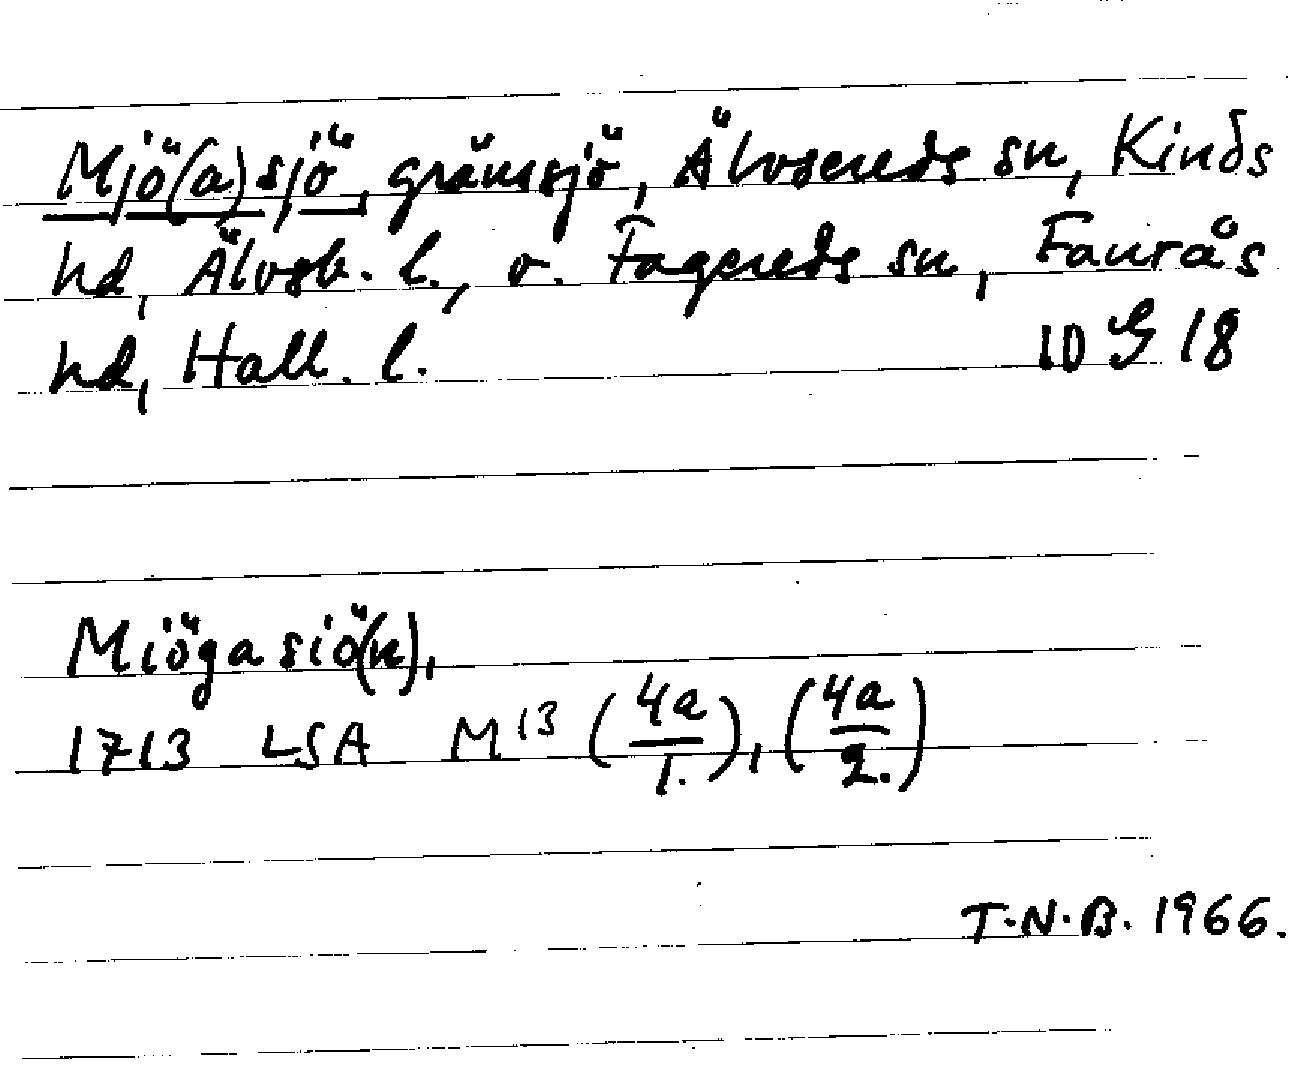 Mjö(a)sjö, gränssjö, Älvsereds sn, Kinds
hd, Älvsb. l., o. Fagereds sn, Faurås
hd, Hall. l. 10 G 18
Miögasiö(n),
1713 LSA M¹³ (4a/1.), (4a/2.)
T.N.B. 1966.